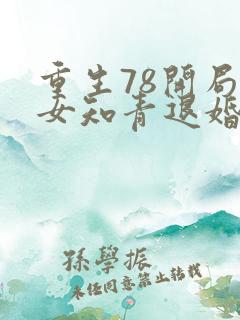 重生78開局
女知青退婚
孫學振
未经同意禁止转载